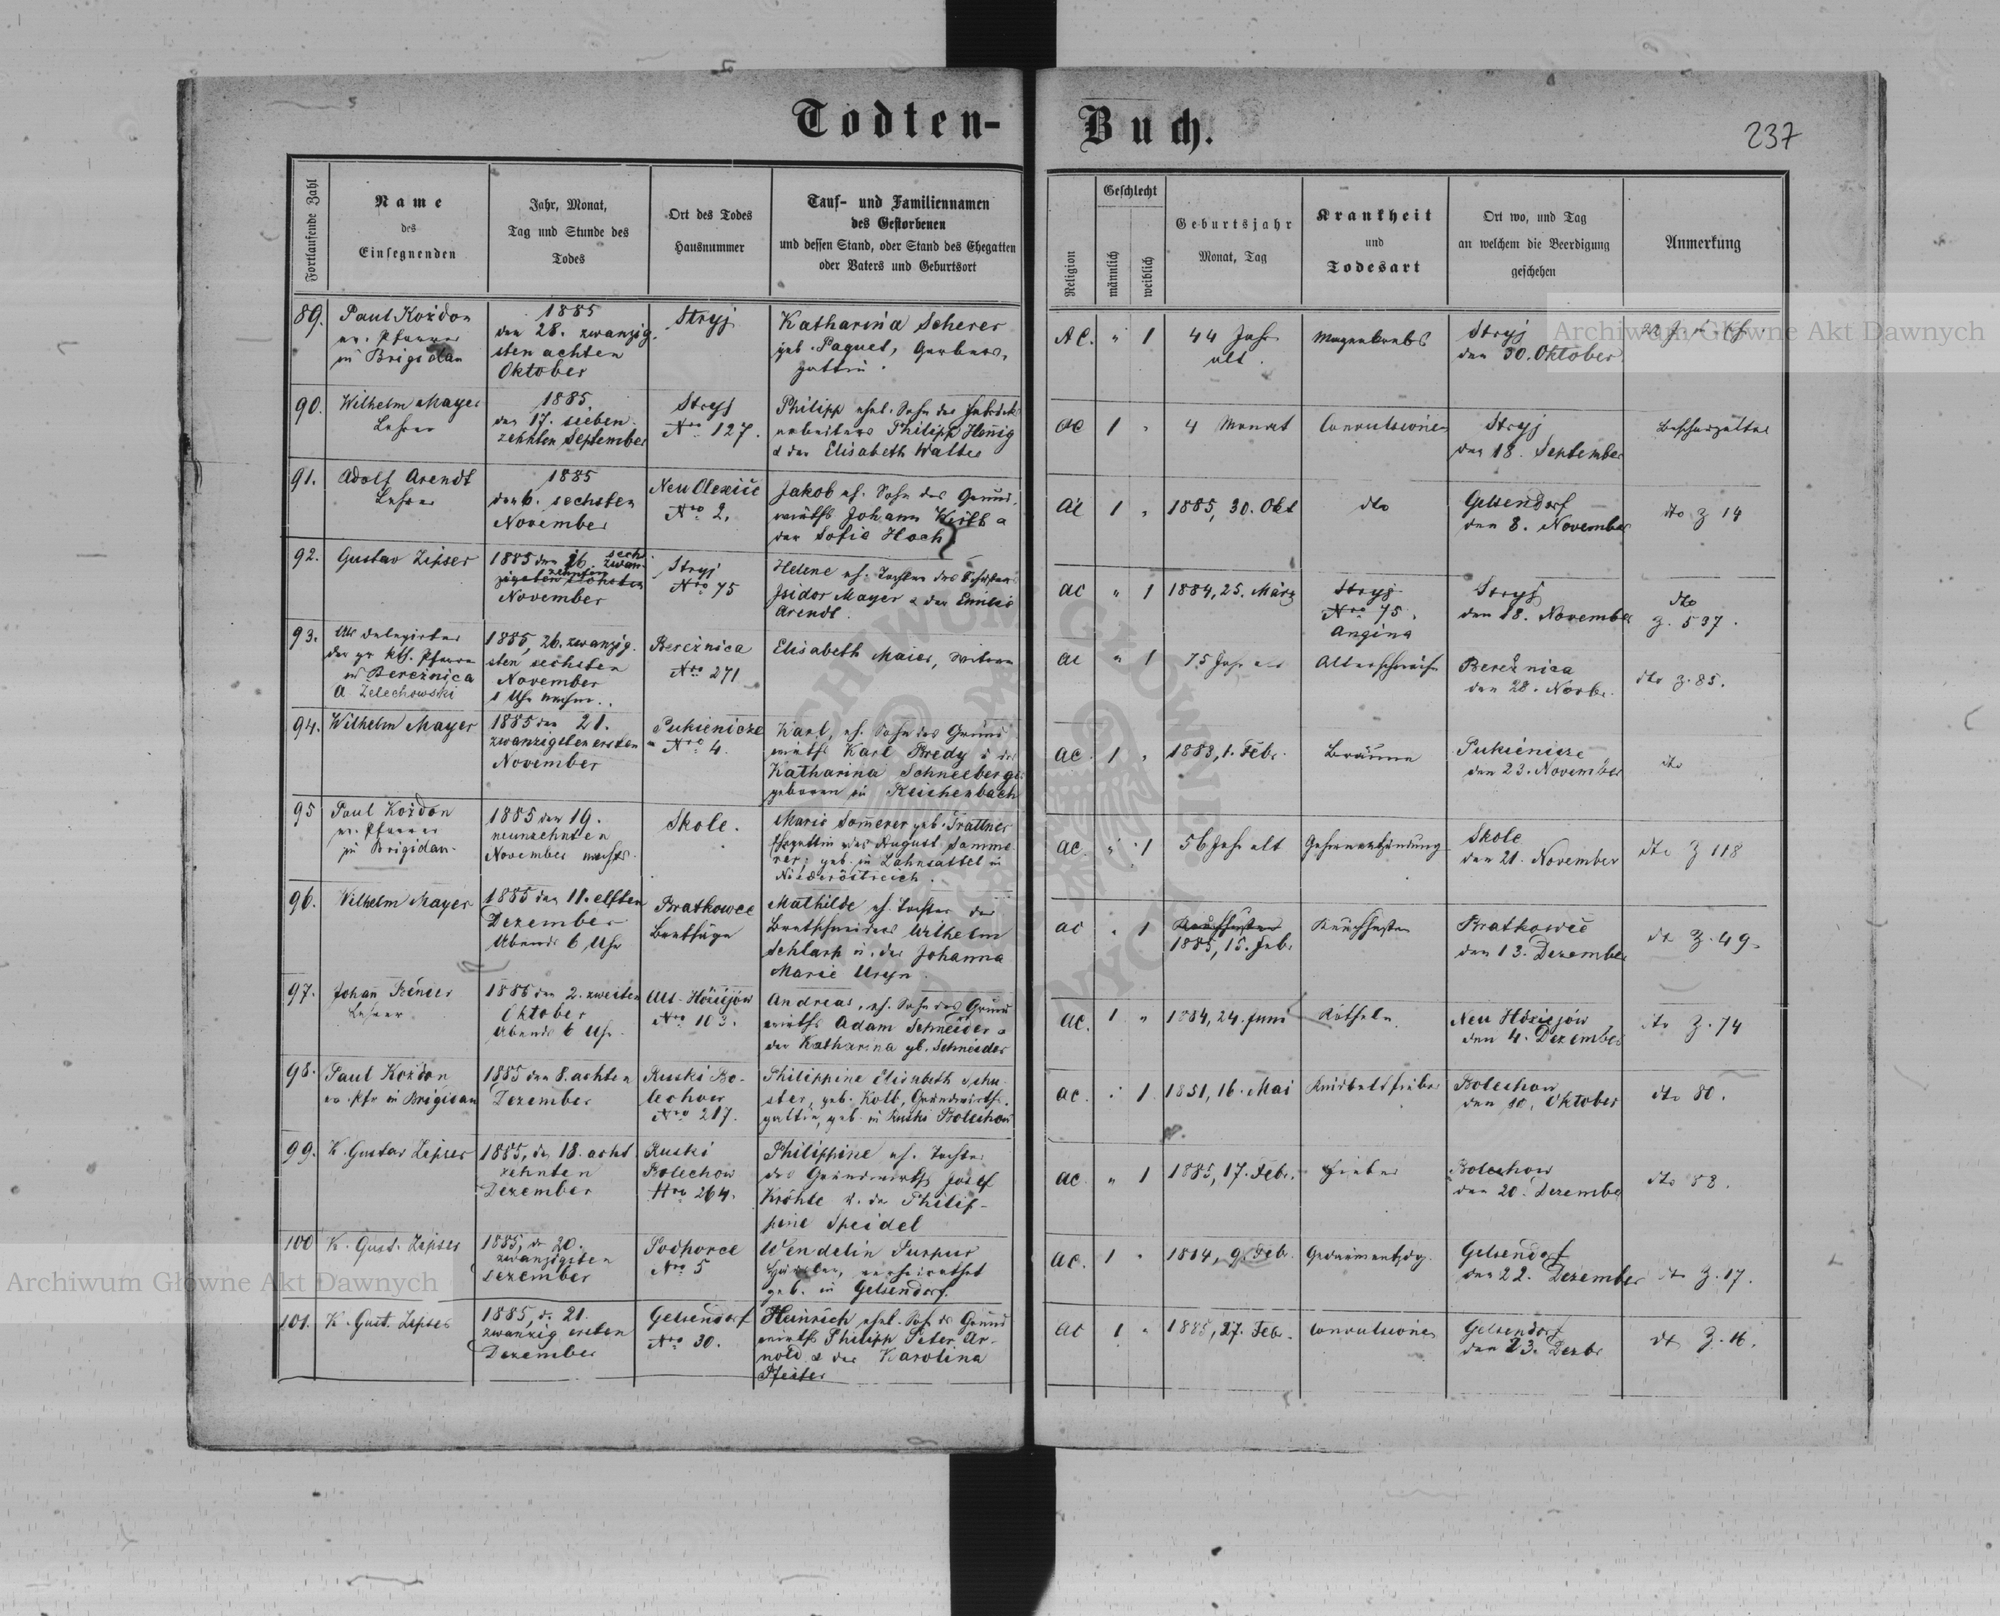 Todten-
Buch.
237
Fortlaufende Zahl
Name
des
Einsegnenden
Jahr, Monat,
Tag und Stunde des
Todes
Ort des Todes
Hausnummer
Tauf- und Familiennamen
des Gestorbenen
und dessen Stand, oder Stand des Ehegatten
oder Vaters und Geburtsort
Religion
Geschlecht
männlich
weiblich
Geburtsjahr
Monat, Tag
Krankheit
und
Todesart
Ort wo, und Tag
an welchem die Beerdigung
geschehen
Anmerkung
89.
Paul Kożdon
ev. Pfarrer
in Brigidau
1885
den 28. zwanzig-
sten achten
Oktober
Stryj
Katharina Scherer
geb. Paquet, Gerbers-
gattin.
AC. " 1
44 Jahr
alt.
Magenkrebs
Stryj
den 30. Oktober
90.
Wilhelm Mayer
Lehrer
1885
den 17. sieben-
zehnten September
Stryj
Nro 127.
Philipp ehel. Sohn des Fabriks-
arbeiters Philipp Honig
& der Elisabeth Walter
ac 1 "
4 Monat
Convulsionen
Stryj
den 18. September
91.
Adolf Arendt
Lehrer
1885
den 6. sechsten
November
Neu Olexice
Nro 2.
Jakob eh. Sohn des Grund-
wirths Johann Wirth &
der Sofie Hoch
ac 1 "
1885, 30. Okt
dto
Gelsendorf
den 8. November
dto Z 14
92.
Gustav Zipser
1885 den 16. sech
zehnten
November
Stryj
Nro 75
Helene eh. Tochter des
Isidor Mayer & der Emilie
Arendt.
ac " 1
1884, 25. März
Stryj
Nro 75.
Angina
Stryj
den 18. November
dto
Z. 537.
93.
Als delegirter
der gr. kth. Pfarrer
in Bereźnica
A. Zelechowski
1885, 26. zwanzig-
sten sechsten
November
1 Uhr nachm.
Bereźnica
Nro 271
Elisabeth Maier, Witwe
ac " 1
75 Jahr alt
Altersschwäche
Bereźnica
den 28. Novbr.
dto Z. 85.
94.
Wilhelm Mayer
1885 den 21.
zwanzigsten ersten
November
Pukienicze
Nro 4.
Karl, eh. Sohn des Grund
wirths Karl Bredy & der
Katharina Schneeberger
geboren in Reichenbach
ac 1 "
1883, 1. Febr.
Bräune
Pukienicze
den 23. November
dto
95
Paul Kożdon
ev. Pfarrer
in Brigidau.
1885 den 19.
neunzehnten
November nachts.
Skole.
Marie Sommerer geb. Trattner
Ehegattin des August Somme-
rer; geb. in Lahnsattel in
Niederöstreich.
ac. " 1
56 Jahr alt
Gehirnentzündung
Skole
den 21. November
dto Z 118
96.
Wilhelm Mayer
1885 den 11. elften
Dezember
Abends 6 Uhr
Bratkowce
Brettsäge
Mathilde eh. Tochter des
Brettschneiders Wilhelm
Schlark u. der Johanna
Marie Uryn.
ac . 1
Keuchhusten
1885, 15. Feb.
Keuchhusten
Bratkowce
den 13. Dezember
dto Z. 49.
97.
Johann
Lehrer
1885 den 2. zweiten
Oktober
Abends 6 Uhr.
Nro 103.
Andreas, eh. Sohn des Grund
wirths Adam Schneider &
der Katharina gb. Schneider
ac. 1 "
1884, 24. Juni
Rötheln
den 4. Dezember
dto Z. 74
98.
Paul Kożdon
ev. Pfr in Brigidau
1885 den 8. achten
Dezember
Ruski Bo-
lechow
Nro 217.
Philippine Elisabeth Schu-
ster, geb. Kolb, Grundwirths-
gattin, geb. in Ruski Bolechow
ac. . 1
1851, 16. Mai
Kindbettfieber
Bolechow
den 10. Oktober
dto 80.
99.
K. Gustav Zipser
1885, den 18. acht
zehnten
Dezember
Ruski
Bolechow
Nro 264.
Philippine eh. Tochter
des Grundwirths Josef
Kröhle & der Philip-
pine Speidel
ac " 1
1885, 17. Feb.
Fieber
Bolechow
den 20. Dezember
dto 88.
100
K. Gust. Zipser
1885, d. 20.
zwanzigsten
Dezember
Podhorce
Nro 5
Wendelin Purpur
verheirathet
geb. in Gelsendorf.
ac. 1 "
1814, 9. Feb.
Gelsendorf
den 22. Dezember
dto Z. 17.
101.
K. Gust. Zipser
1885, d. 21.
zwanzig ersten
Dezember
Gelsendorf
Nro 30.
Heinrich ehel. Sohn des Grund
wirths Philipp Peter Ar-
nold & der Karolina
Pfeifer
ac 1 "
1885, 27. Febr.
Convulsionen
Gelsendorf
den 23. Dezbr
dto Z. 16.
Archiwum Główne Akt Dawnych
Archiwum Główne Akt Dawnych